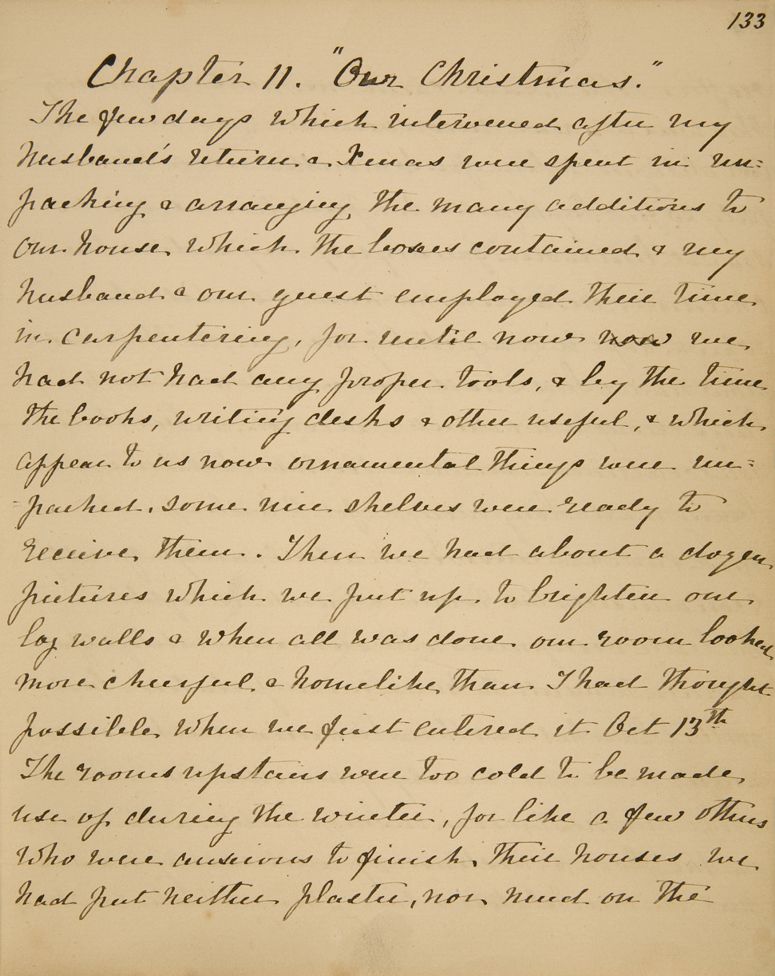 133
Chapter 11. "Our Christmas."
The few days which intervened after my
husband's return & Xmas were spent in un=
packing & arranging the many additions to
our house which the boxes contained & my
husband & our guest employed their time
in carpentering, for until now now we
had not had any proper tools, & by the time
the books, writing desks & other useful, & which
appear to us now ornamental things were un=
=packed, some nice shelves were ready to
receive them. Then we had about a dozen
pictures which we put up to brighten our
log walls & when all was done our room looked
more cheerful & homelike than I had thought
possible when we first entered it Oct 13th
The rooms upstairs were too cold to be made
use of during the winter, for like a few others
who were anxious to finish their houses we
had put neither plaster, nor mud on the